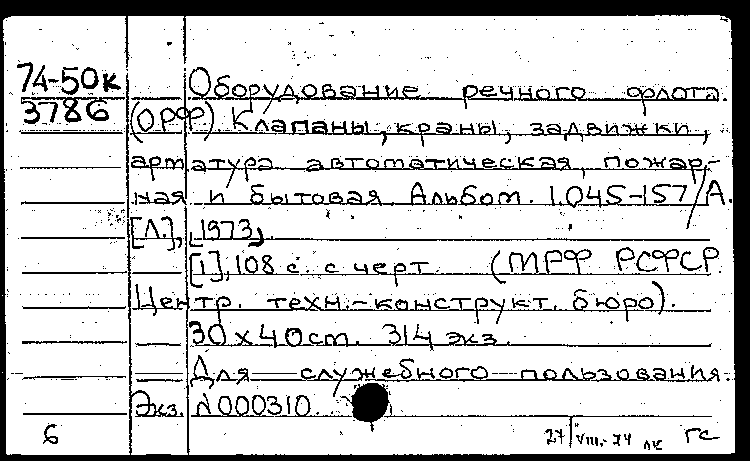 74-50к
3786
Оборудование речного флота.
(ОРФ) Клапаны, краны, задвижки,
арматура автоматическая, пожар-
ная и бытовая. Альбом. 1.045-157/А.
[Л.], [1973].
[1], 108 с. с черт. (МРФ РСФСР.
Центр. техн.-конструкт. бюро).
30х40cm. 314 экз.
Для служебного пользования.
Экз. N000310.
6
27/VIII-74 лк ГС